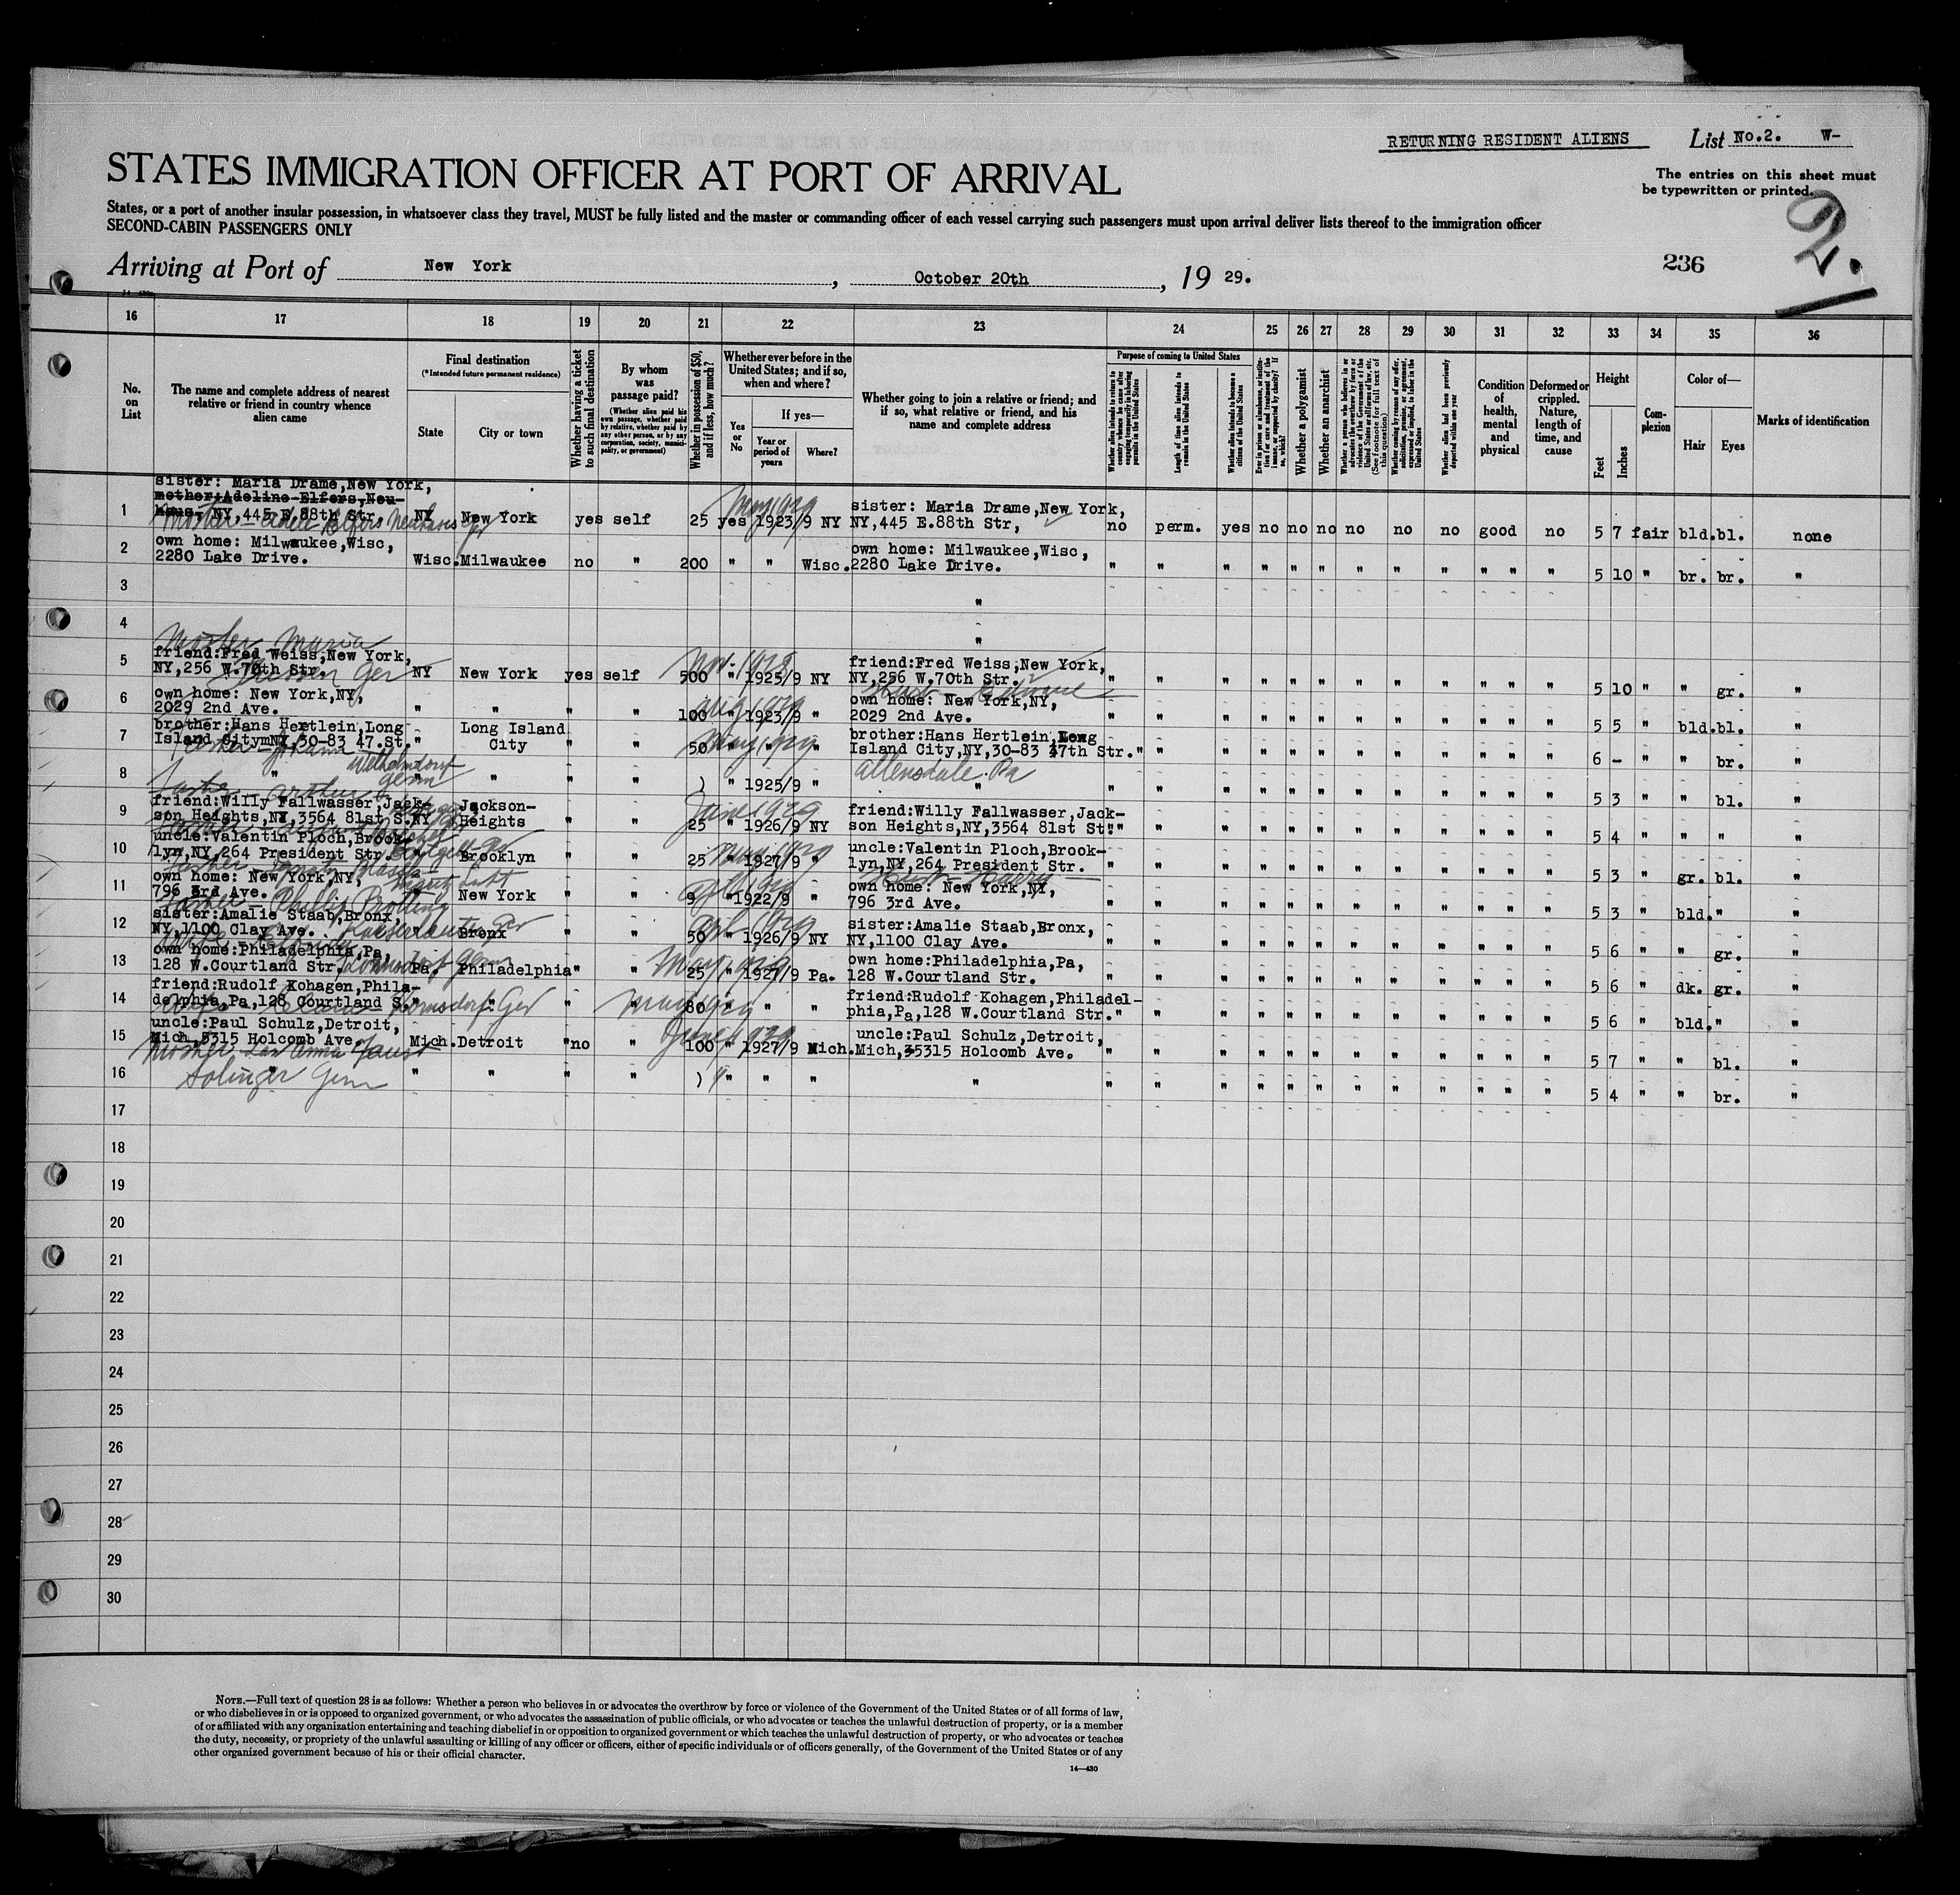 RETURNING RESIDENT ALIENS List No.2. W-
STATES IMMIGRATION OFFICER AT PORT OF ARRIVAL
The entries on this sheet must
be typewritten or printed.
2.
States, or a port of another insular possession, in whatsoever class they travel, MUST be fully listed and the master or commanding officer of each vessel carrying such passengers must upon arrival deliver lists thereof to the immigration officer
SECOND-CABIN PASSENGERS ONLY
Arriving at Port of New York, October 20th, 19 29.
236
16 17 18 19 20 21 22 23 24 25 26 27 28 29 30 31 32 33 34 35 36
No. on List
The name and complete address of nearest relative or friend in country whence alien came
Final destination
(*Intended future permanent residence)
State
City or town
Whether having a ticket to such final destination
By whom was passage paid?
(Whether alien paid his own passage, whether paid by relative, whether paid by any other person, or by any corporation, society, municipality, or government)
Whether in possession of $50, and if less, how much?
Whether ever before in the United States; and if so, when and where?
Yes or No
If yes—
Year or period of years
Where?
Whether going to join a relative or friend; and if so, what relative or friend, and his name and complete address
Purpose of coming to United States
Whether alien intends to return to country whence he came after engaging temporarily in laboring pursuits in the United States
Length of time alien intends to remain in the United States
Whether alien intends to become a citizen of the United States
Whether a polygamist
Whether an anarchist
Whether alien had been previously deported within one year
Condition of health, mental and physical
Deformed or crippled. Nature, length of time, and cause
Height
Feet
Inches
Complexion
Color of—
Hair
Eyes
Marks of identification
1 sister: Maria Drame,New York,
mother:Adeline Elfers,Neu-
NY,445 E.88th Str, NY New York yes self 25 yes 1923/9 NY sister: Maria Drame,New York, NY,445 E.88th Str, no perm. yes no no no no no no good no 5 7 fair bld. bl. none
May 1929
2 own home: Milwaukee,Wisc,
2280 Lake Drive. Wisc. Milwaukee no " 200 " " Wisc. own home: Milwaukee,Wisc, 2280 Lake Drive. " " " " " " " " " " " " 5 10 " br. br. "
3 "
4 "
Mother Maria
5 friend:Fred Weiss,New York,
NY,256 W.70th Str. NY New York yes self 500 " 1925/9 NY friend:Fred Weiss,New York, NY,256 W.70th Str. " " " " " " " " " " " " 5 10 " " gr. "
Nov. 1928
6 own home: New York,NY,
2029 2nd Ave. " " " " 100 " 1923/9 " own home: New York,NY, 2029 2nd Ave. " " " " " " " " " " " " 5 5 " bld. bl. "
7 brother:Hans Hertlein,Long
Island CitymNY,30-83 47.St. " Long Island City " " 50 " " " brother:Hans Hertlein,Long Island City,NY,30-83 47th Str. " " " " " " " " " " " " 6 - " " br. "
8 " " " " " ) " 1925/9 " " " " " " " " " " " " " " 5 3 " " bl. "
Allensdale Pa
9 friend:Willy Fallwasser,Jack-
son Heights,NY,3564 81st S. NY Jackson-Heights " " 25 " 1926/9 NY friend:Willy Fallwasser,Jack-son Heights,NY,3564 81st St. " " " " " " " " " " " " 5 4 " " " "
June 1929
10 uncle:Valentin Ploch,Brook-
lyn,NY,264 President Str. " Brooklyn " " 25 " 1927/9 " uncle:Valentin Ploch,Brook-lyn,NY,264 President Str. " " " " " " " " " " " " 5 3 " gr. bl. "
11 own home: New York,NY,
796 3rd Ave. " New York " " 9 " 1922/9 " own home: New York,NY, 796 3rd Ave. " " " " " " " " " " " " 5 3 " bld. " "
12 sister:Amalie Staab,Bronx,
NY,1100 Clay Ave. " Bronx " " 50 " 1926/9 NY sister:Amalie Staab,Bronx, NY,1100 Clay Ave. " " " " " " " " " " " " 5 6 " " gr. "
13 own home:Philadelphia,Pa,
128 W.Courtland Str. Pa. Philadelphia " " 25 " 1927/9 Pa. own home:Philadelphia,Pa, 128 W.Courtland Str. " " " " " " " " " " " " 5 6 " dk. gr. "
May 1929
14 friend:Rudolf Kohagen,Phila-
delphia,Pa,128 Courtland S. " " " " 80 " " " friend:Rudolf Kohagen,Philadel-phia,Pa,128 W.Courtland Str. " " " " " " " " " " " " 5 6 " bld. " "
15 uncle:Paul Schulz,Detroit,
Mich,5315 Holcomb Ave. Mich. Detroit "no " 100 " 1927/9 Mich. uncle:Paul Schulz,Detroit, Mich,35315 Holcomb Ave. " " " " " " " " " " " " 5 7 " " bl. "
June 1929
16 " " " " " ) " " " " " " " " " " " " " " " " 5 4 " " br. "
Solinger Germ
17
18
19
20
21
22
23
24
25
26
27
28
29
30
NOTE.—Full text of question 28 is as follows: Whether a person who believes in or advocates the overthrow by force or violence of the Government of the United States or of all forms of law,
or who disbelieves in or is opposed to organized government, or who advocates the assassination of public officials, or who advocates or teaches the unlawful destruction of property, or is a member
of or affiliated with any organization entertaining and teaching disbelief in or opposition to organized government or which teaches the unlawful destruction of property, or who advocates or teaches
the duty, necessity, or propriety of the unlawful assaulting or killing of any officer or officers, either of specific individuals or of officers generally, of the Government of the United States or of any
other organized government because of his or their official character.
14—430